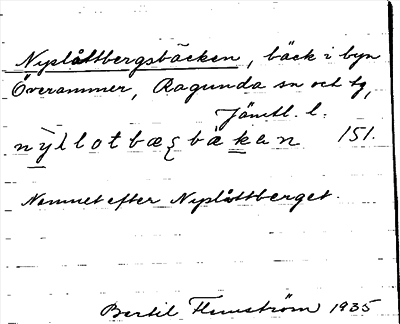 Nyslåttbergsbäcken, bäck i byn
Överammer, Ragunda sn och tg,
Jämtl. l.
151.
Namnet efter Nyslåttberget.
Bertil Flemström 1935